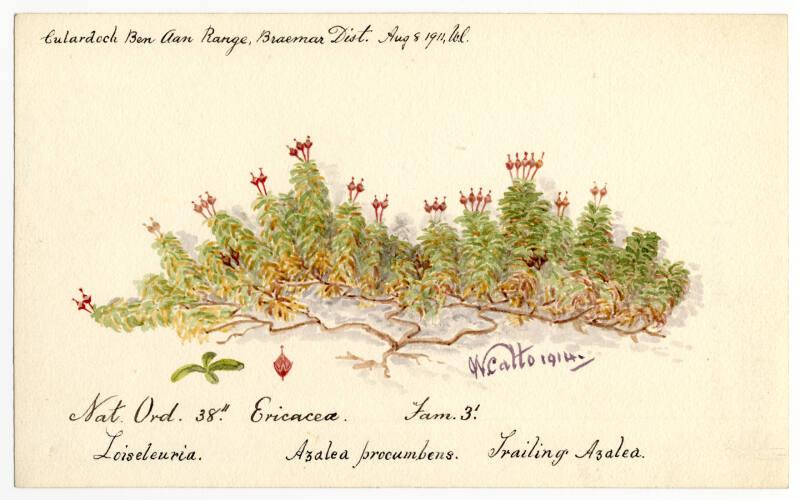 Culardoch Ben Aan Range, Braemar Dist. Aug 8 1911,
W Catto 1914.
Nat. Ord. 38." Ericaceæ. Fam. 3!
Loiseleuria. Azalea procumbens. Trailing Azalea.